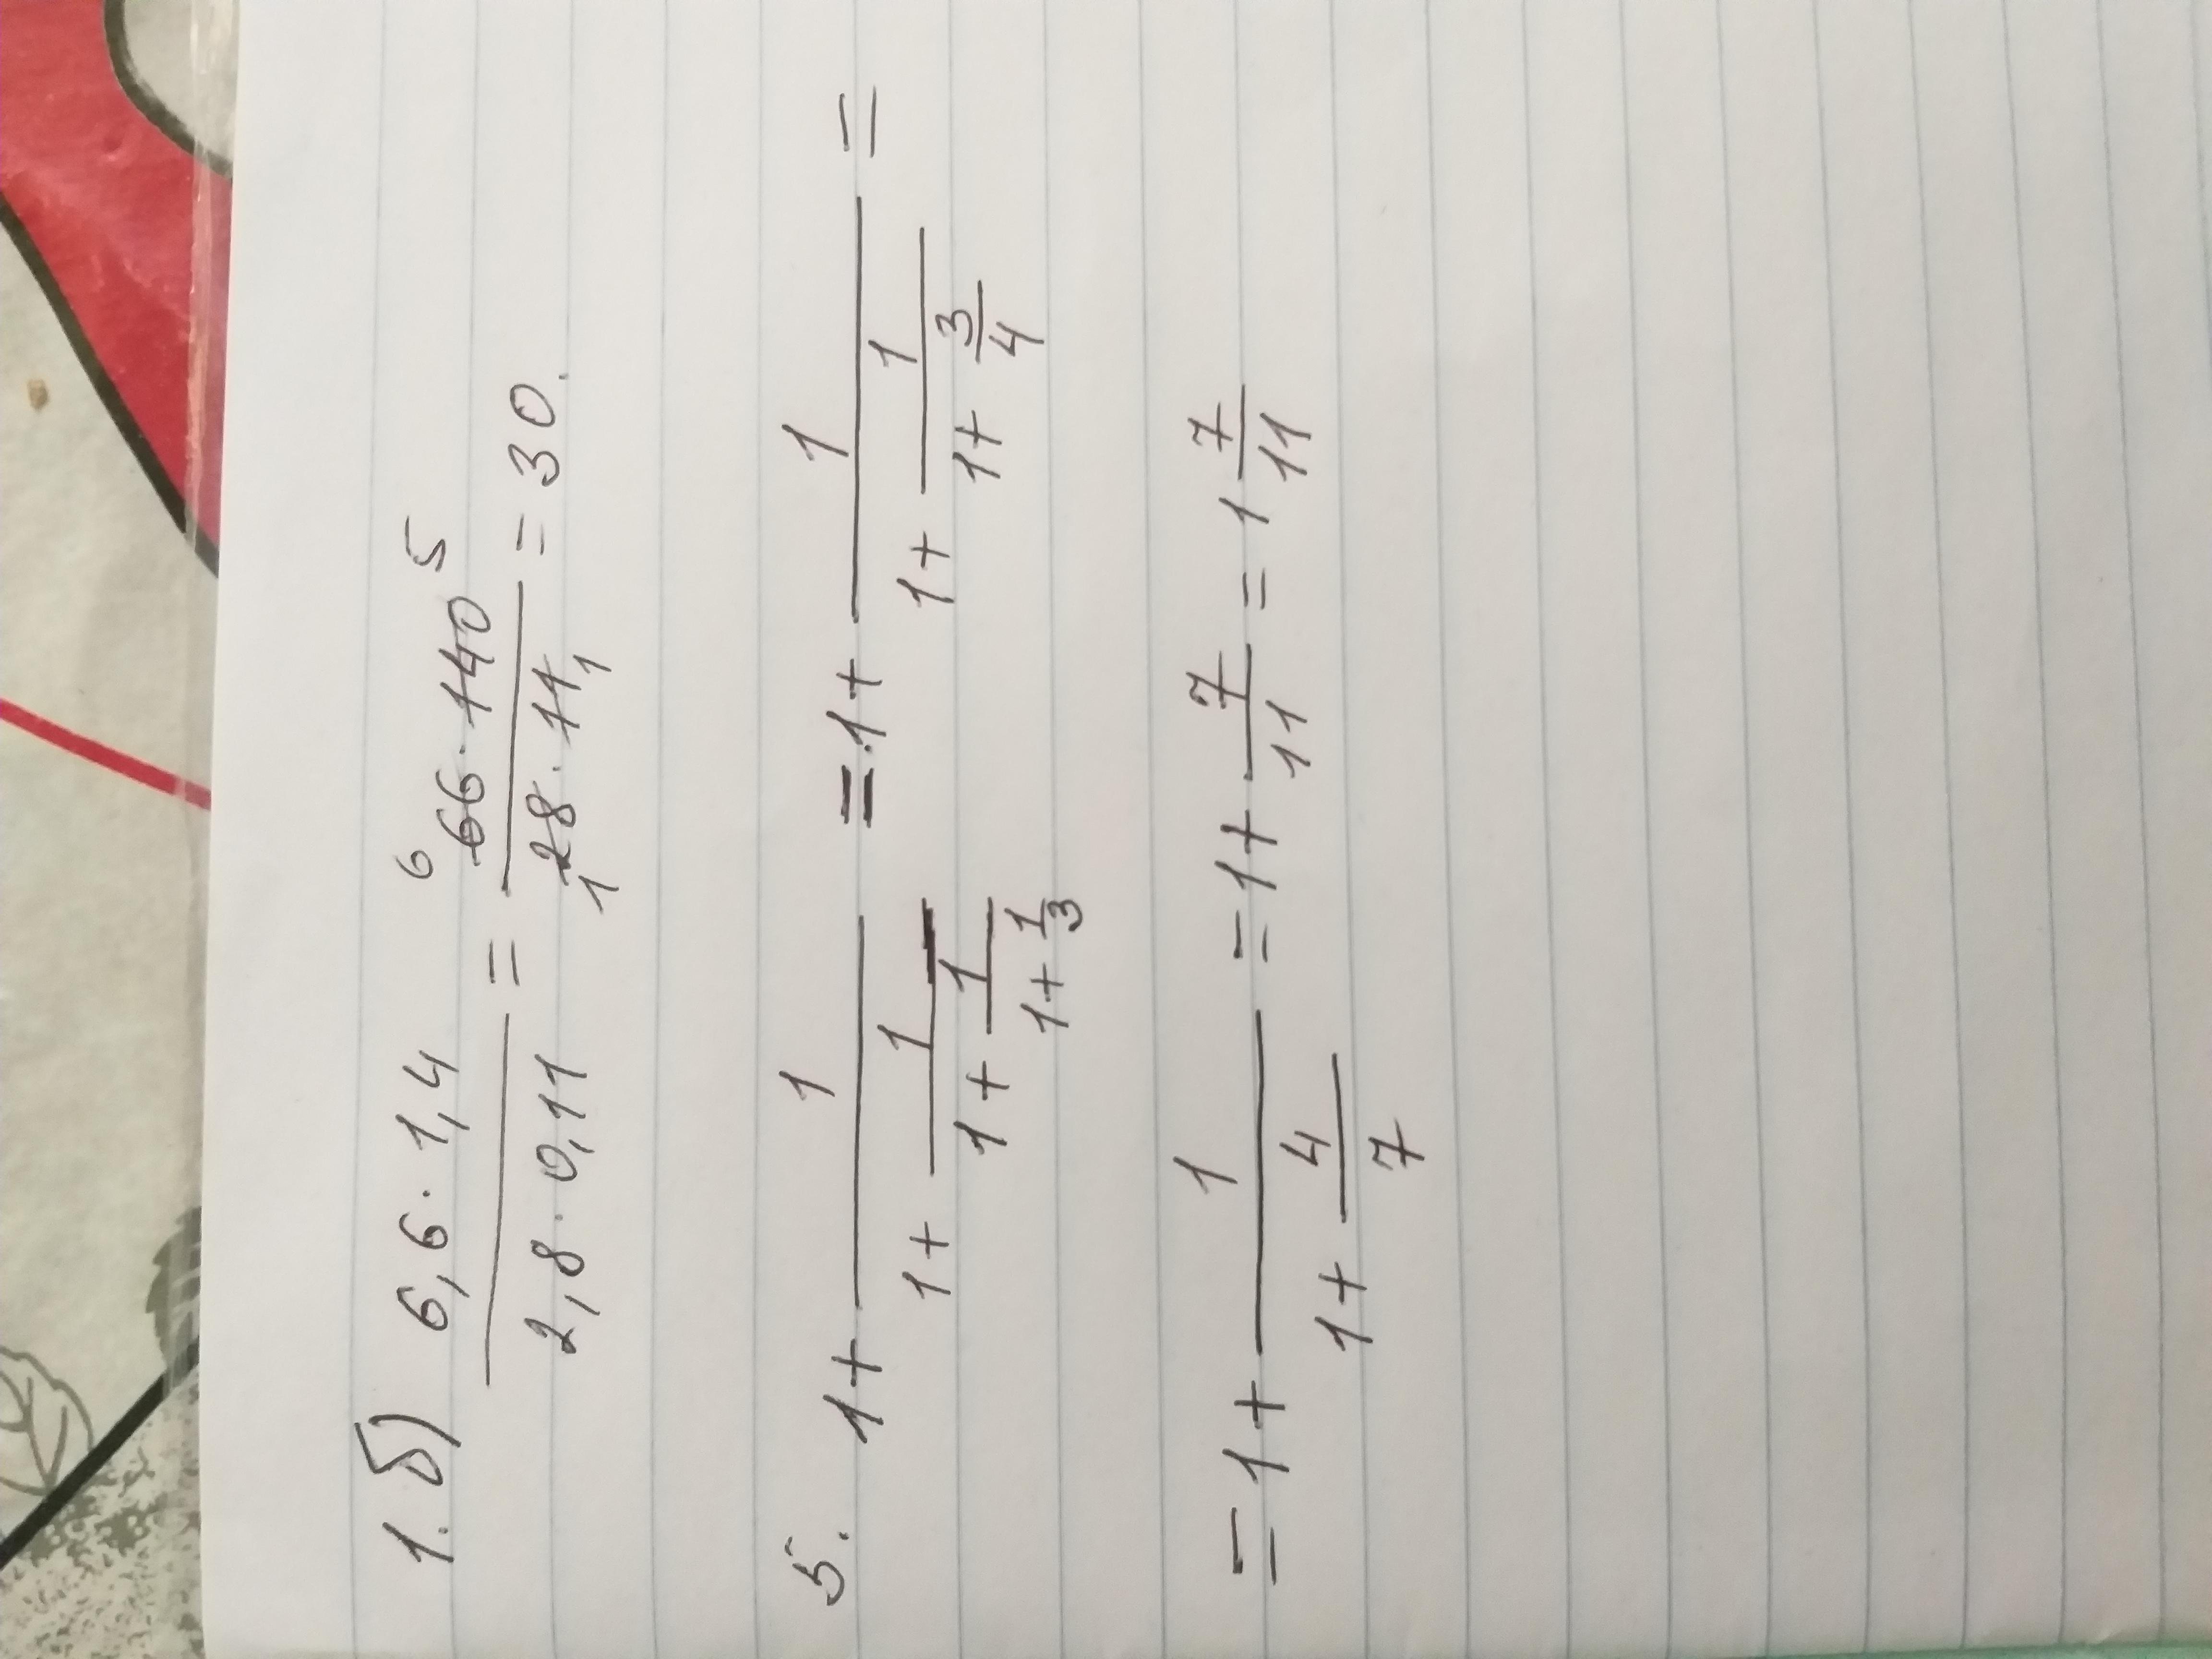 1.б) (6,6 · 1,4)/(2,8 · 0,11) = (66 · 140)/(28 · 11) = 30.
6 5
1 1
5. 1 + 1/(1 + 1/(1 + 1/(1 + 1/3))) = 1 + 1/(1 + 1/(1 + 3/4)) =
= 1 + 1/(1 + 4/7) = 1 + 7/11 = 1 7/11